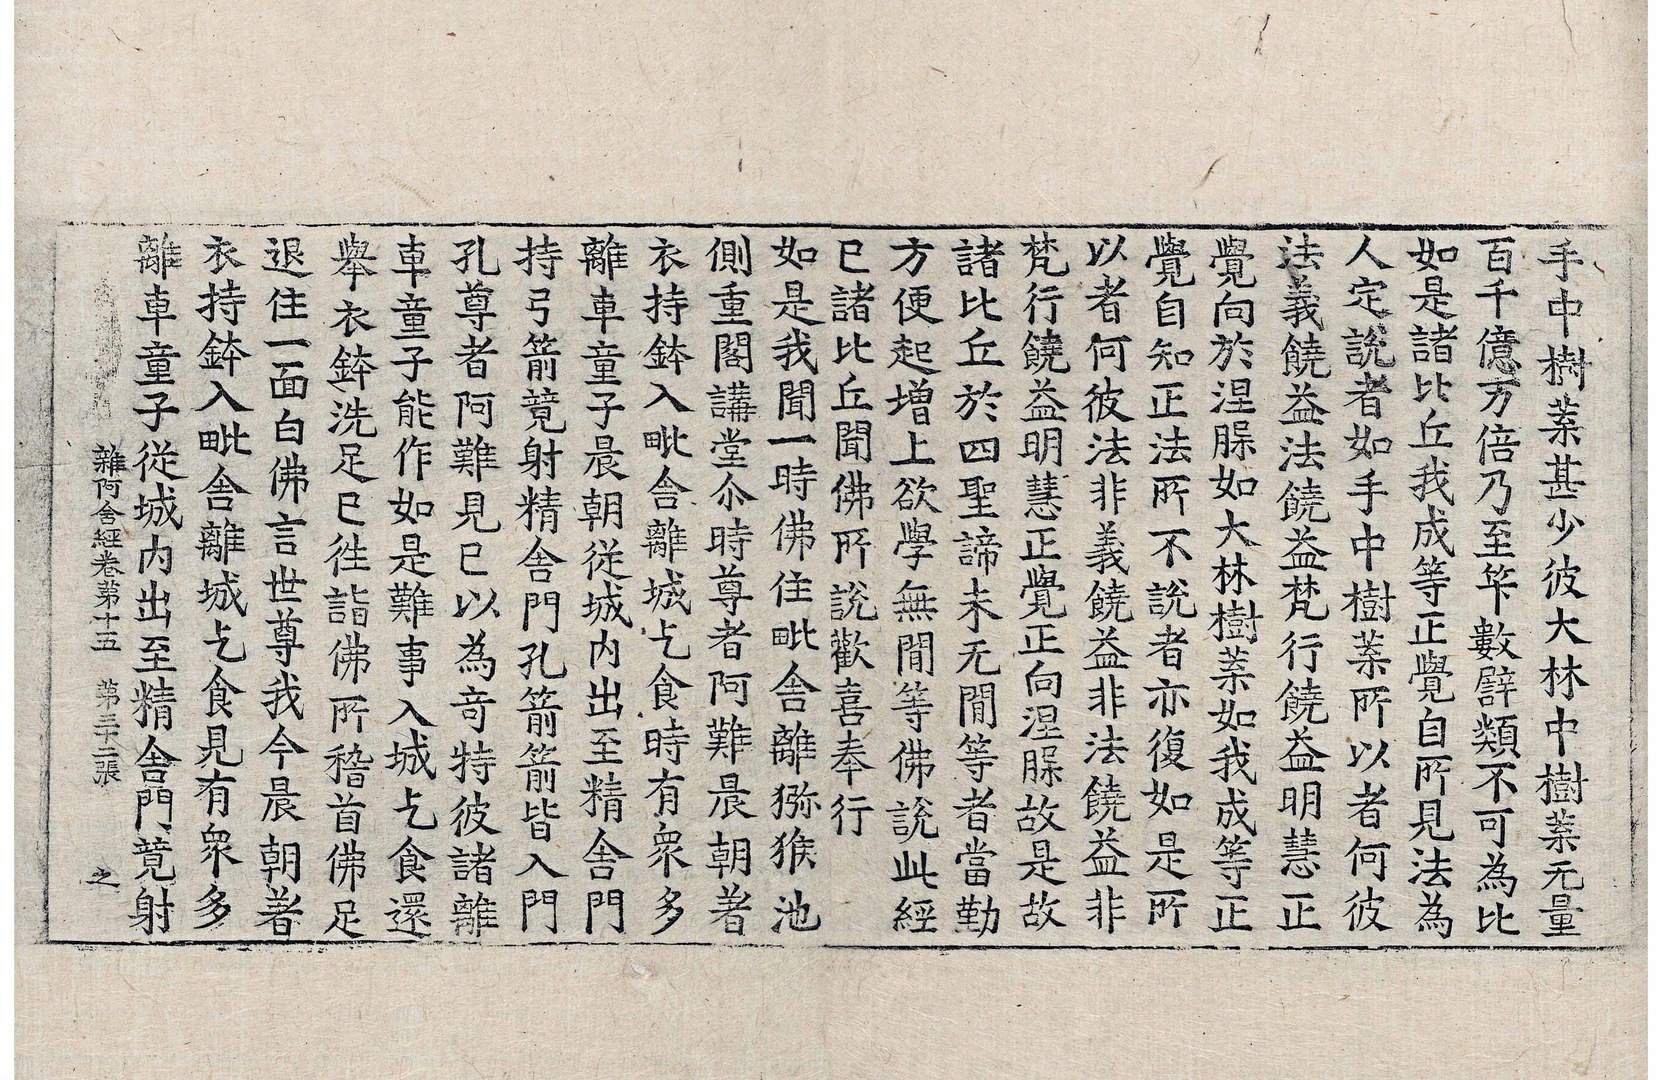 手中樹葉甚少彼大林中樹葉无量
百千億万倍乃至筭數譬類不可為比
如是諸比丘我成等正覺自所見法為
人定說者如手中樹葉所以者何彼
法義饒益法饒益梵行饒益明慧正
覺向於涅槃如大林樹葉如我成等正
覺自知正法所不說者亦復如是所
以者何彼法非義饒益非法饒益非
梵行饒益明慧正覺正向涅槃故是故
諸比丘於四聖諦未无閒等者當勤
方便起增上欲學無閒等佛說此經
已諸比丘聞佛所說歡喜奉行
如是我聞一時佛住毗舍離獼猴池
側重閣講堂尒時尊者阿難晨朝著
衣持鉢入毗舍離城乞食時有衆多
離車童子晨朝從城內出至精舍門
持弓箭競射精舍門孔箭箭皆入門
孔尊者阿難見已以為奇特彼諸離
車童子能作如是難事入城乞食還
舉衣鉢洗足已徃詣佛所稽首佛足
退住一面白佛言世尊我今晨朝著
衣持鉢入毗舍離城乞食見有衆多
離車童子從城內出至精舍門競射
雜阿含經卷第十五 第三十二張 之